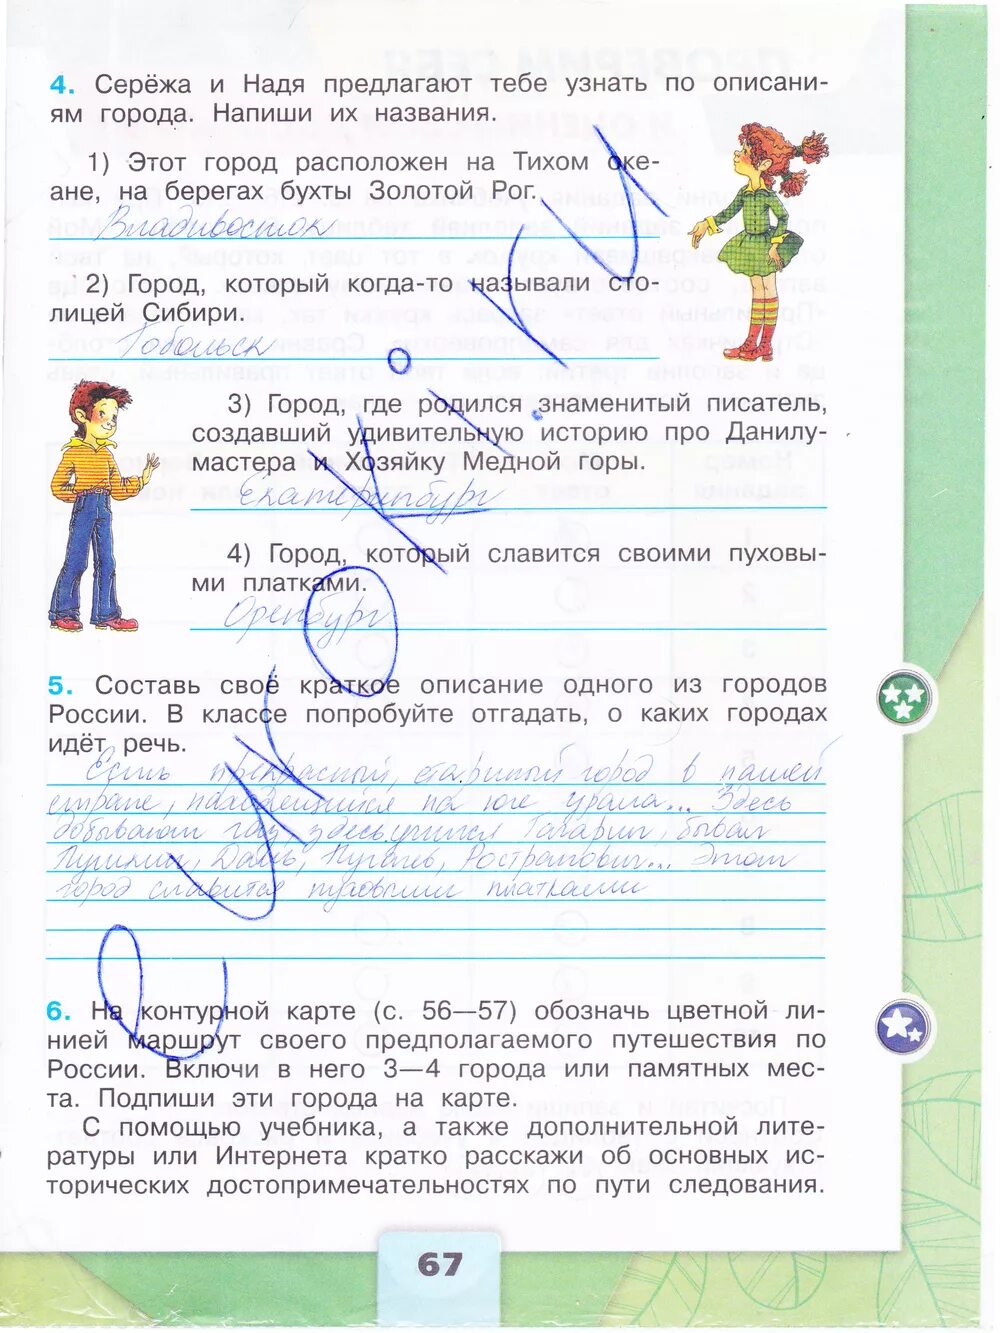 4. Серёжа и Надя предлагают тебе узнать по описани-
ям города. Напиши их названия.
1) Этот город расположен на Тихом оке-
ане, на берегах бухты Золотой Рог.
Владивосток
2) Город, который когда-то называли сто-
лицей Сибири.
Тобольск
3) Город, где родился знаменитый писатель,
создавший удивительную историю про Данилу-
мастера и Хозяйку Медной горы.
Екатеринбург
4) Город, который славится своими пуховы-
ми платками.
Оренбург
5. Составь своё краткое описание одного из городов
России. В классе попробуйте отгадать, о каких городах
идёт речь.
Есть прекрасный, старинный город в нашей
стране, находящийся на юге урала... Здесь
добывают газ, здесь учился Гагарин, бывал
Пушкин, Даль, Ростропович... Этот
город славится пуховыми платками
6. На контурной карте (с. 56—57) обозначь цветной ли-
нией маршрут своего предполагаемого путешествия по
России. Включи в него 3—4 города или памятных мес-
та. Подпиши эти города на карте.
С помощью учебника, а также дополнительной лите-
ратуры или Интернета кратко расскажи об основных ис-
торических достопримечательностях по пути следования.
67